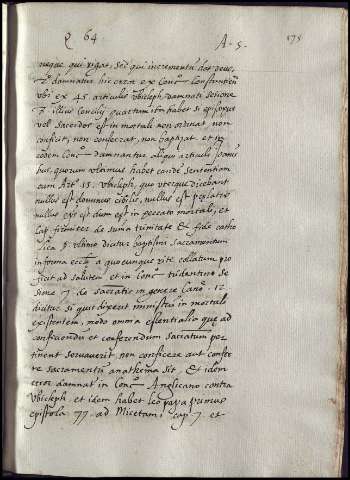 Q 64. A. 5. 175
neque qui rigat, sed qui incrementũ dat deus,
damnatur hic error ex Conc. Constantien
ubi ex 45 articulis Ubicleph damnatis sesione
illius Concilij quartum ibi habet si episcopus
vel sacerdos est in mortali non ordinat, non
conficit, non consecrat, non baptizat. et in
eodem Conc. damnantur aliqui articuli Joanis
hus, quorum ultimus habet eandẽ sententiam
cum Art. 15. Ubicleph, quo uterque dicebant
nullus est dominus civilis, nullus est prelatus
nullus eps est dum est in peccato mortali, et
Cap. firmiter de suma trinitate & fide catho
lica § ultimo dicitur baptismi sacramentum
in forma eccłę a quocunque rite collatum pro
ficit ad salutem et in Conc. tridentino se
sione 7. de sacratis in genere Cano. 12
dicitur si quis dixerit ministrũ in mortali
existentem, modo omnia essentialia quę ad
conficiendũ et conferendum sacratum per
tinent servaverit non conficere aut confer
re sacramentũ anathema sit. Et idem
error damnat in Conc. Anglicano contra
Ubicleph et idem habet leo papa primus
epistola 77. ad Nicetam cap 7. et